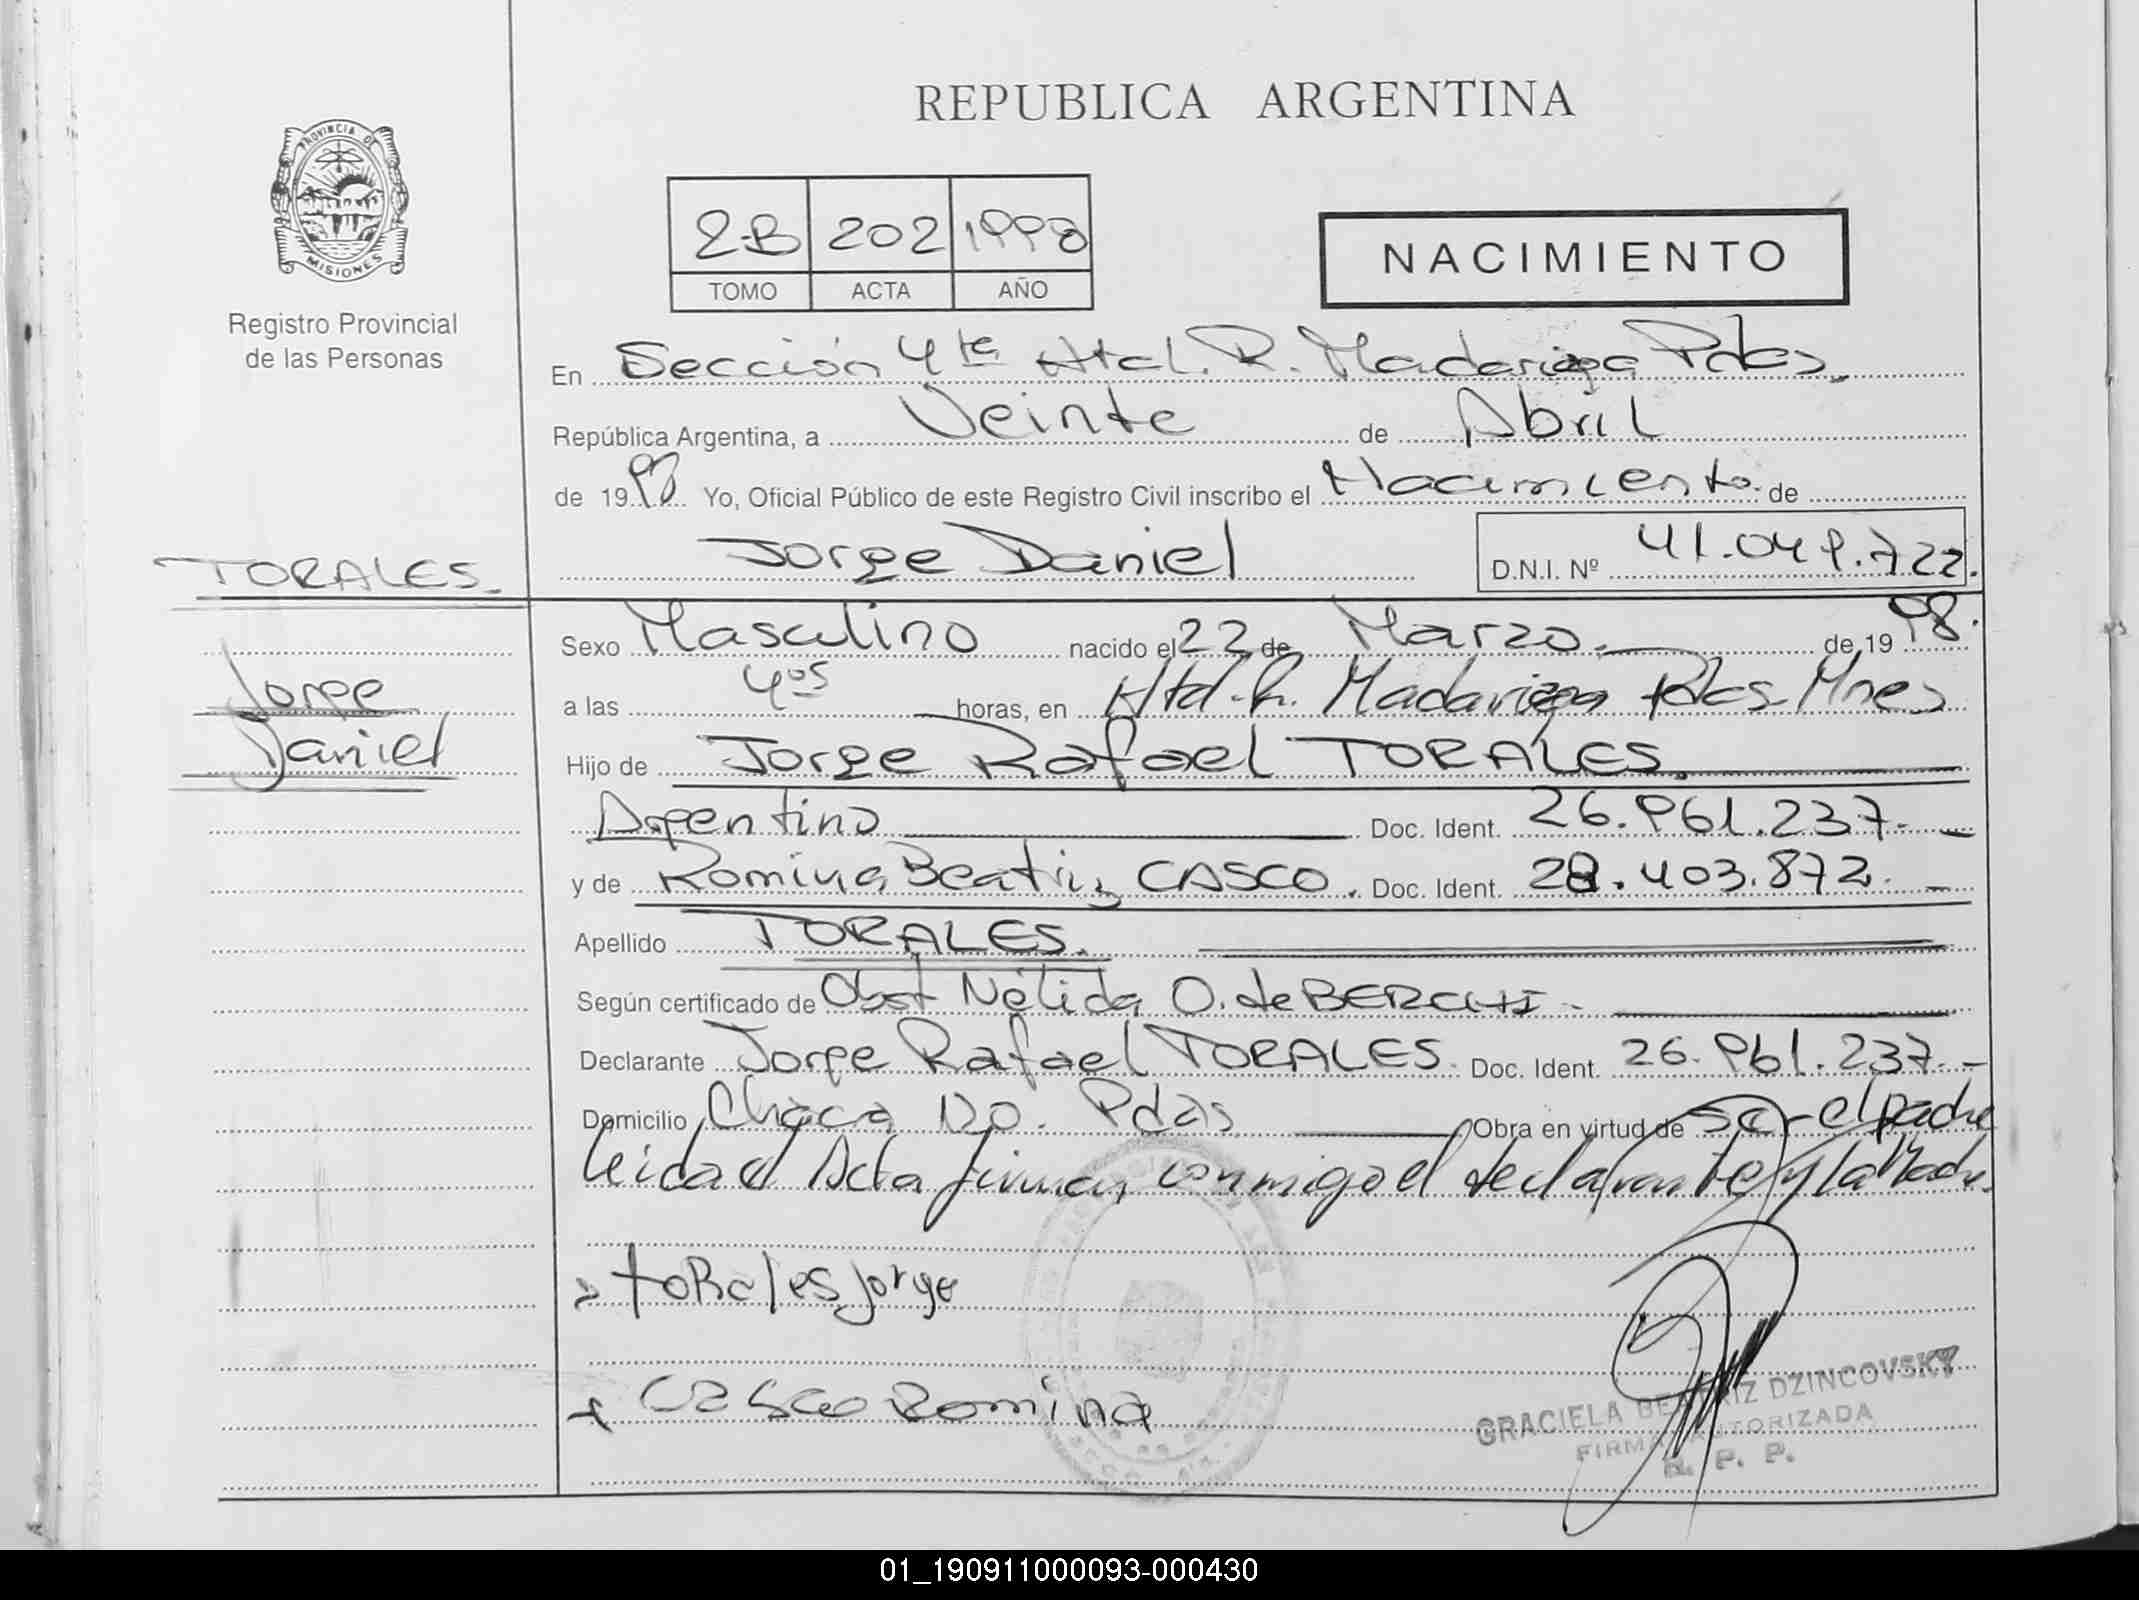 REPUBLICA ARGENTINA
PROVINCIA DE
MISIONES
Registro Provincial
de las Personas
2-B 202 1998
TOMO ACTA AÑO
NACIMIENTO
En Sección 4ta Htal. R. Madariaga Pdas.
República Argentina, a Veinte de Abril
de 1998 Yo, Oficial Público de este Registro Civil inscribo el Nacimiento de
Jorge Daniel D.N.I. Nº 41.049.722.
TORALES.
Jorge
Daniel
Sexo Masculino nacido el 22 de Marzo. de 1998.
a las 4os horas, en Htal. R. Madariaga Pdas Mnes
Hijo de Jorge Rafael TORALES.
Argentino Doc. Ident. 26.961.237.-
y de Romina Beatriz CASCO. Doc. Ident. 28.403.872. -
Apellido TORALES.
Según certificado de Obst Nélida O. de BERCHI -
Declarante Jorge Rafael TORALES. Doc. Ident. 26.961.237.-
Domicilio Chacra 120. Pdas Obra en virtud de ser el padre
leida el Acta firman conmigo el declarante y la Madre.
toRales jorge
CASCO Romina
GRACIELA BEATRIZ DZINCOVSKY
FIRMA AUTORIZADA
R. P. P.
01_190911000093-000430